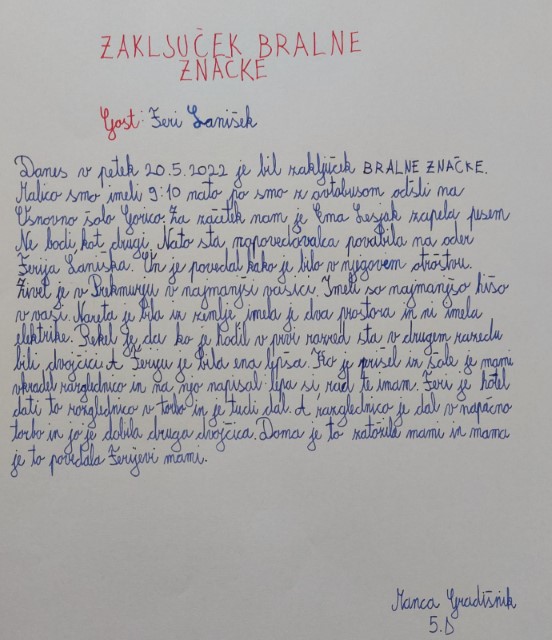 ZAKLJUČEK BRALNE
ZNAČKE
Gost: Feri Lanišek
Danes v petek 20.5.2022 je bil zaključek BRALNE ZNAČKE.
Malico smo imeli 9:10 nato po smo z avtobusom odšli na
Osnovno šolo Gorico. Za začetek nam je Ema Lesjak zapela pesem
Ne bodi kot drugi. Nato sta napovedovalca povabila na oder
Ferija Laniška. On je povedal kako je bilo v njegovem otroštvu.
Živel je v Prekmurju v najmanjši vasici. Imeli so najmanjšo hišo
v vasi. Nareta je bila in zemlje imela je dva prostora in ni imela
elektrike. Rekel je, da ko je hodil v prvi razred sta v drugem razredu
bili dvojčici. A Feriju je bila ena lepša. Ko je prišel iz šole je mami
ukradel razglednico in na njo napisal: lepa si, rad te imam. Feri je hotel
dati to razglednico v torbo in je tudi dal. A razglednico je dal v napačno
torbo in jo je dobila druga dvojčica. Doma je to zatožila mami in mama
je to povedala Ferijevi mami.
Manca Gradišnik
5.D